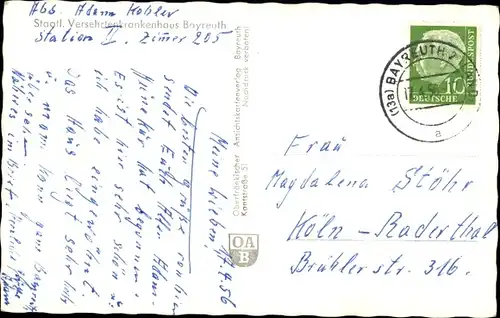 Abs. Adam Kobler
Staatl. Versehrtenkrankenhaus Bayreuth
Station II. Zimer 205
17.4.56
Meine Lieben!
Die besten Grüße von hier
sendet Euch Allen Adam.
Meine Kur hat begonnen.
Es ist hier sehr schön u.
ich habe eingewöhnt
Das Haus liegt sehr hoch
u. man kann ganz Bayreuth
übersehen.
Näheres im Brief.
Oberfränkischer Ansichtskartenverlag Bayreuth
Kantstraße 5 Nachdruck verboten!
OA
B
(13a) BAYREUTH 2
a
10
DEUTSCHE
BUNDESPOST
Frau
Magdalena Stöhr
Köln-Raderthal
Brühlerstr. 316.